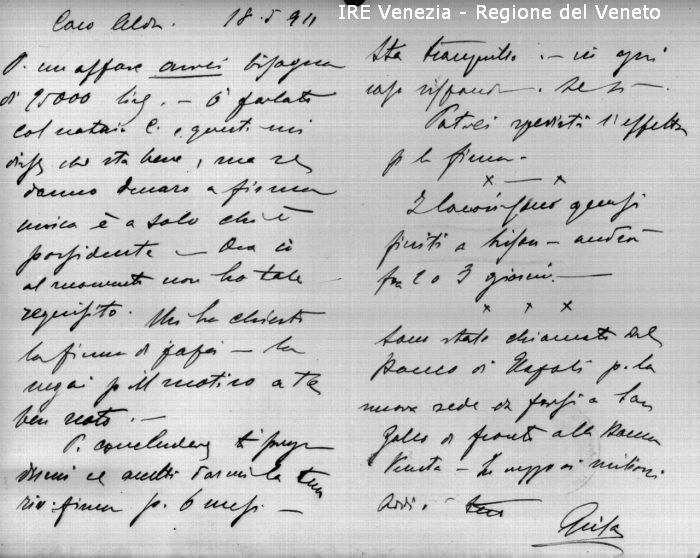 IRE Venezia - Regione del Veneto
Caro Aldo. 18.5.911
P. un affare avrei bisogno
di 25000 lire. - Ò parlato
col notaio C. e questi mi
disse che sta bene, ma se
danno denaro a firma
unica è a solo chi è
possidente - Ora io
al momento non ho tale
requisito. Mi ha chiesto
la firma di papà - la
negai p. il motivo a te
ben noto. -
P. concludere ti prego
dirmi se avresti darmi la tua
firma p. 6 mesi -
Sta tranquillo. - in ogni
caso rispondi. Se sì -
Potrei spedirti l'effetto
p. la firma -
x — x
I lavori sono quasi
finiti a - andrò
fra 2 o 3 giorni. —
x x x
Sono stato chiamato dal
Banco di Napoli p. la
nuova sede da farsi a San
Gallo di fronte alla Banca
Veneta - milioni
Addio. -